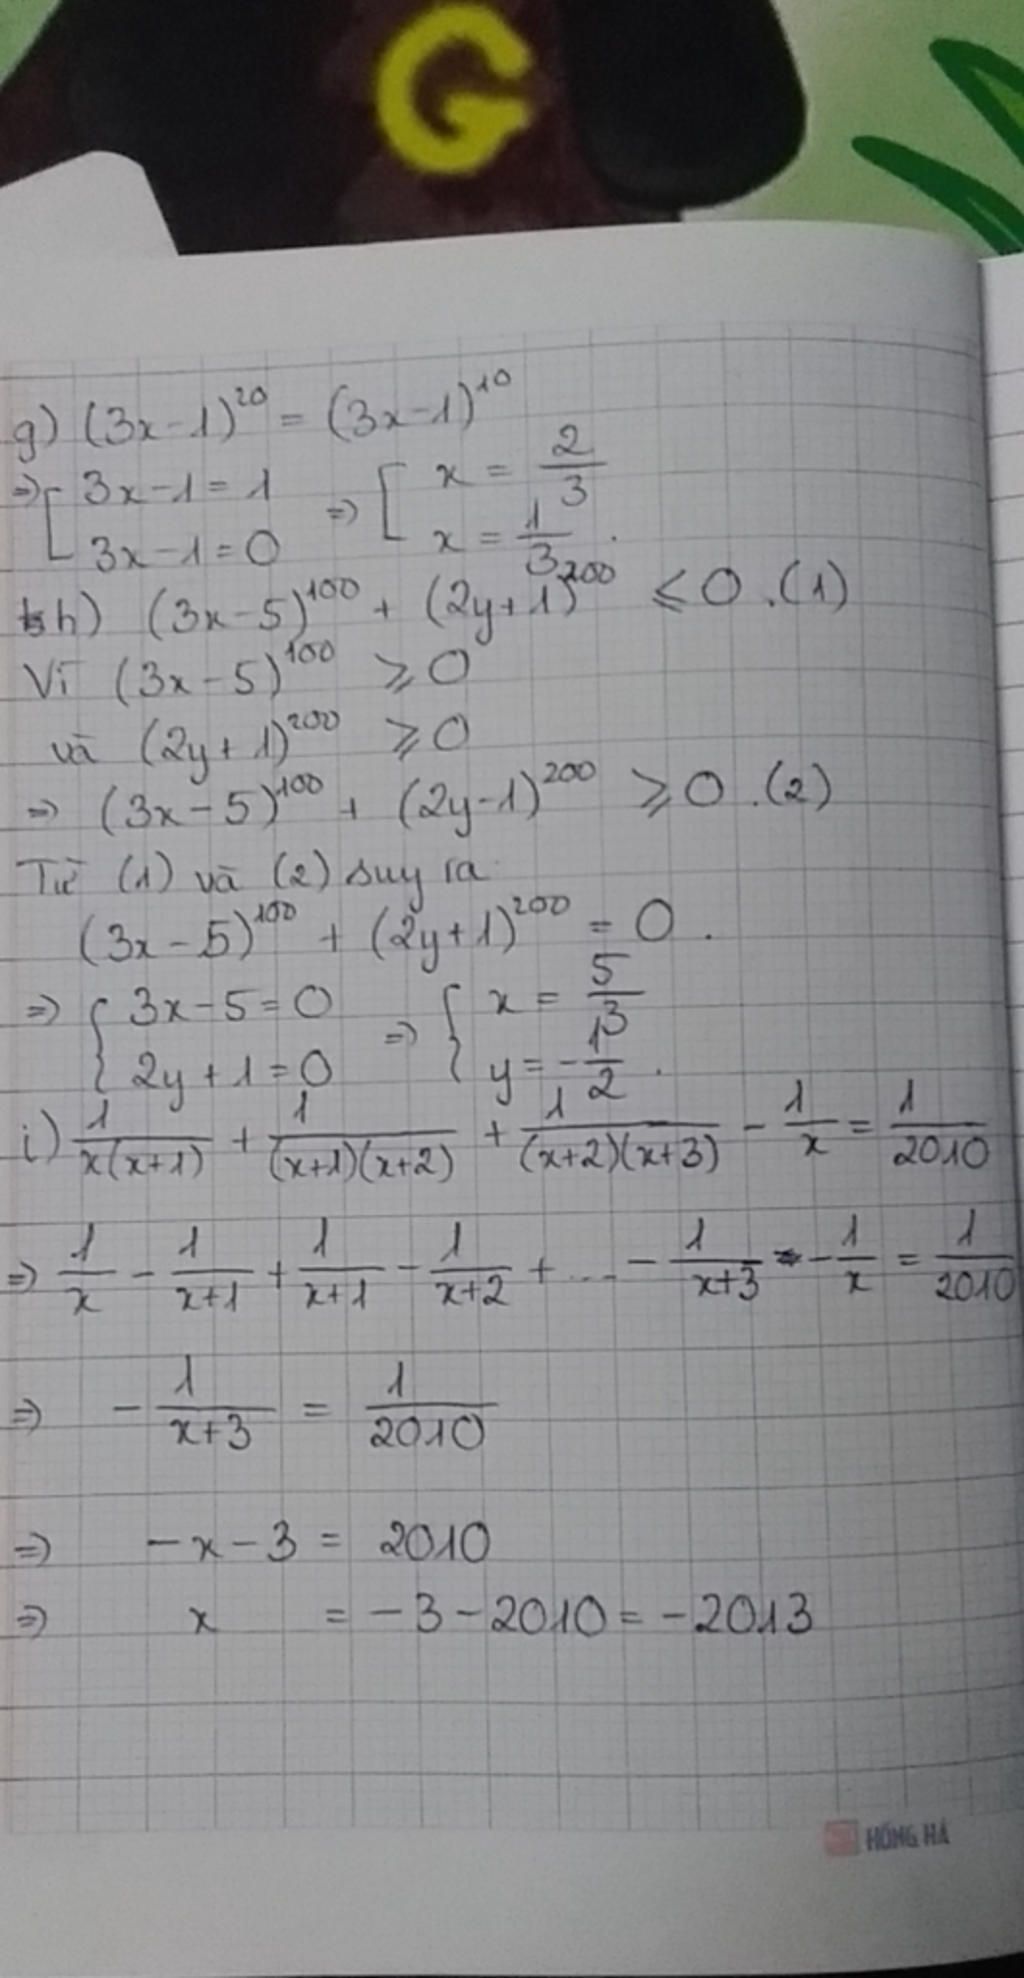 G
g) (3x-1)^20 = (3x-1)^10
=> [ 3x-1=1 => [ x = 2/3
3x-1=0 x = 1/3 .
h) (3x-5)^100 + (2y+1)^200 ≤ 0 .(1)
Vì (3x-5)^100 ≥ 0
và (2y+1)^200 ≥ 0
=> (3x-5)^100 + (2y-1)^200 ≥ 0 .(2)
Từ (1) và (2) suy ra
(3x-5)^100 + (2y+1)^200 = 0 .
=> { 3x-5=0 => { x = 5/3
2y+1=0 y = -1/2 .
i) 1/x(x+1) + 1/(x+1)(x+2) + 1/(x+2)(x+3) - 1/x = 1/2010
=> 1/x - 1/x+1 + 1/x+1 - 1/x+2 + ... - 1/x+3 - 1/x = 1/2010
=> - 1/x+3 = 1/2010
=> -x-3 = 2010
=> x = -3-2010 = -2013
HỒNG HÀ